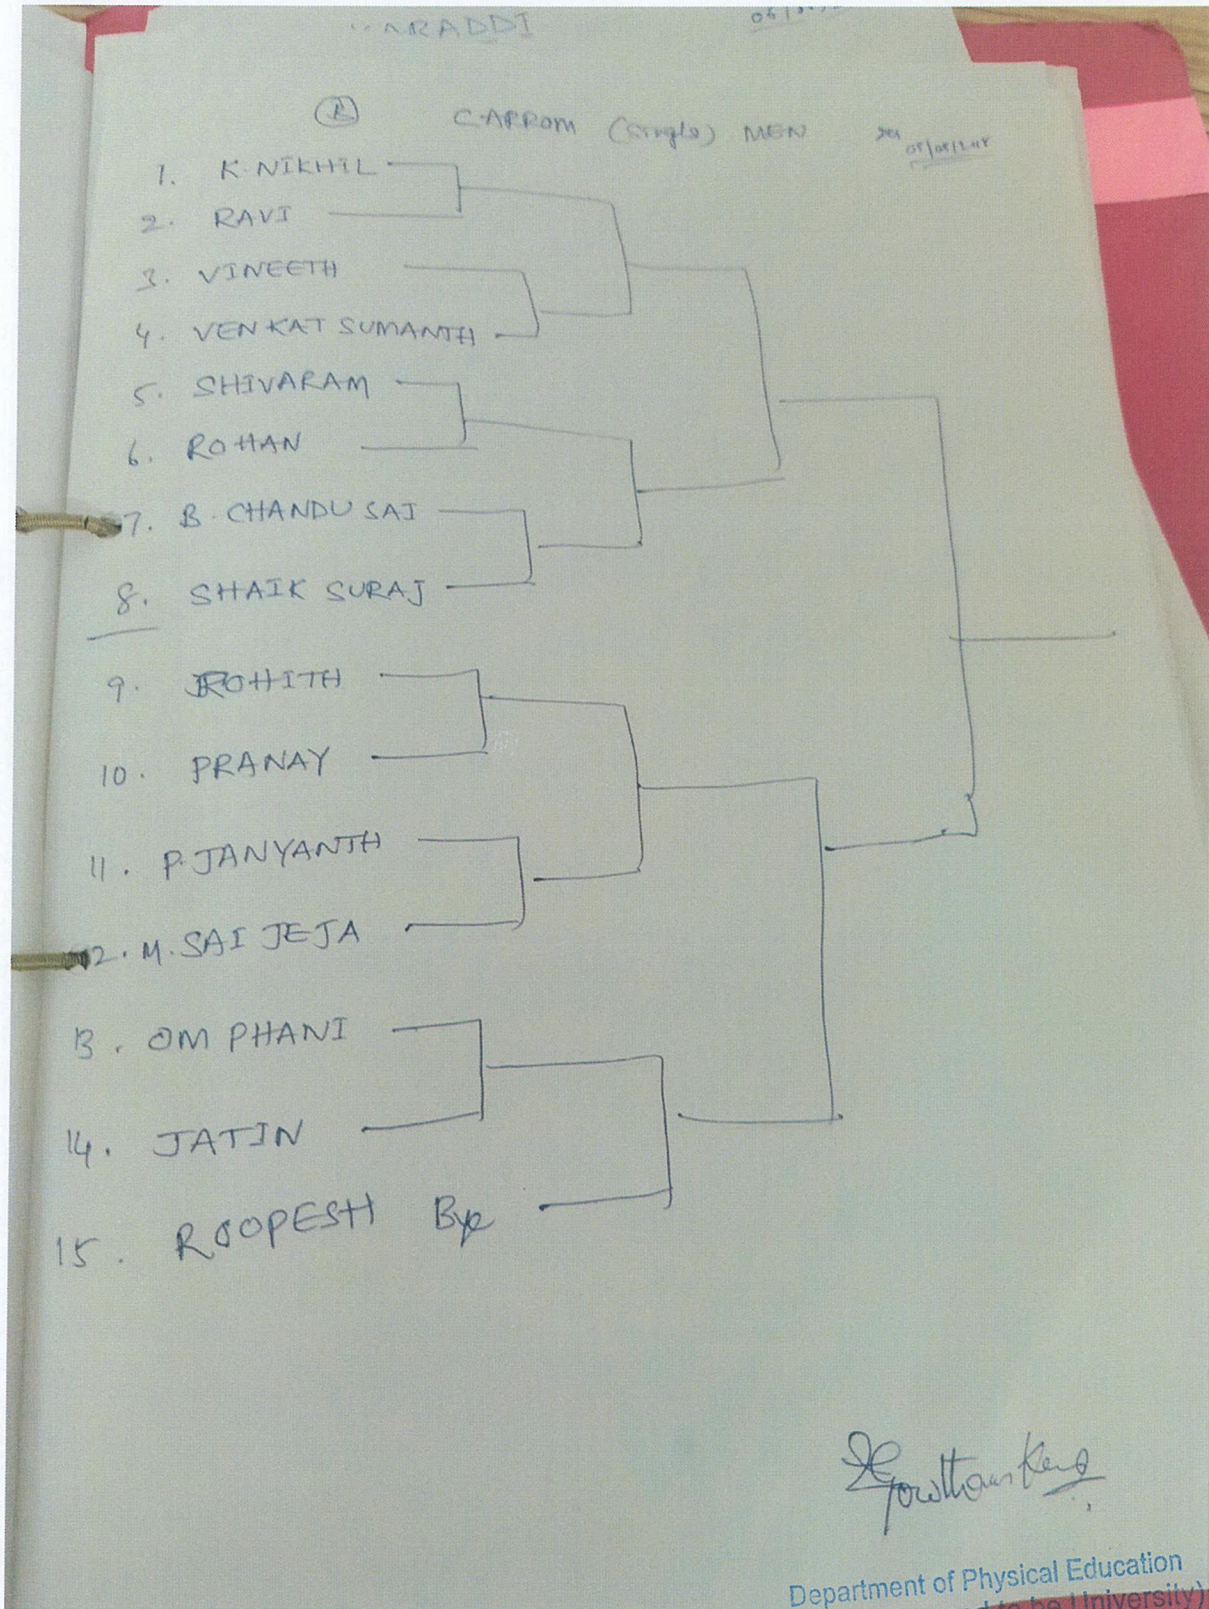 ARADDI
CARROM (Single) MEN
1. K. NIKHIL
2. RAVI
3. VINEETH
4. VENKAT SUMANTH
5. SHIVARAM
6. ROHAN
7. B. CHANDU SAI
8. SHAIK SURAJ
9. ROHITH
10. PRANAY
11. P. JANYANTH
12. M. SAI JEJA
13. OM PHANI
14. JATIN
15. ROOPESH Bye
Department of Physical Education
d to be University)